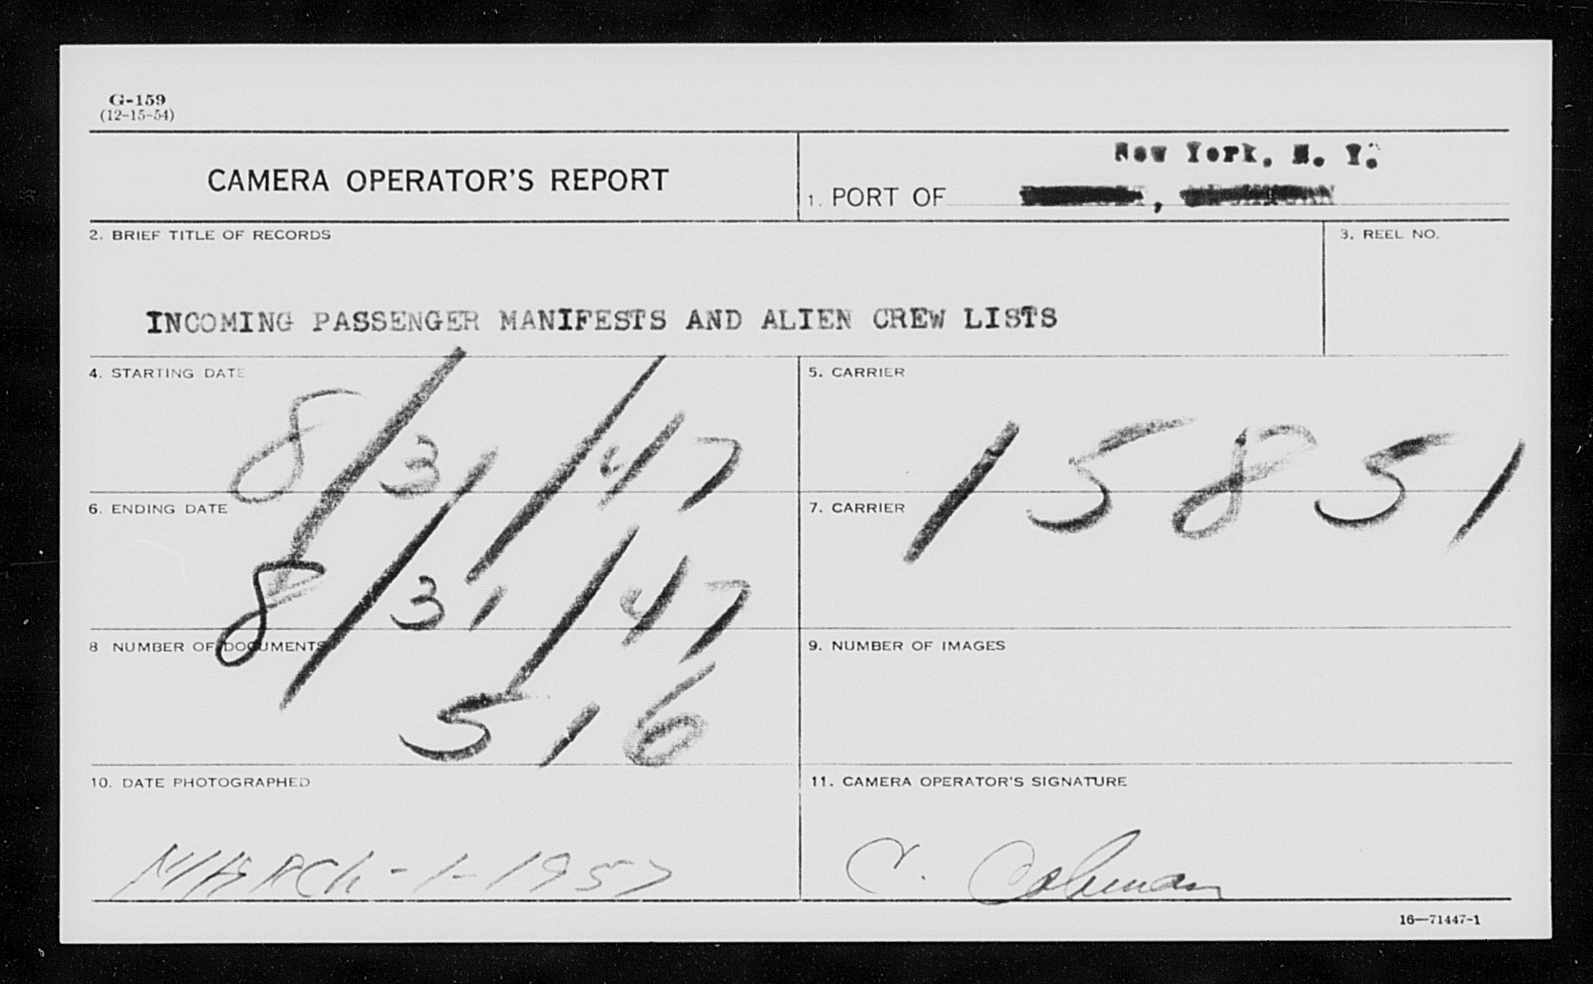 G-159
(12-15-54)
CAMERA OPERATOR'S REPORT
New York, N. Y.
1. PORT OF
2. BRIEF TITLE OF RECORDS
3. REEL NO.
INCOMING PASSENGER MANIFESTS AND ALIEN CREW LISTS
4. STARTING DATE
8/31/47
5. CARRIER
15851
6. ENDING DATE
8/31/47
7. CARRIER
8 NUMBER OF DOCUMENTS
516
9. NUMBER OF IMAGES
10. DATE PHOTOGRAPHED
MARCh-1-1957
11. CAMERA OPERATOR'S SIGNATURE
C. Coleman
16—71447-1